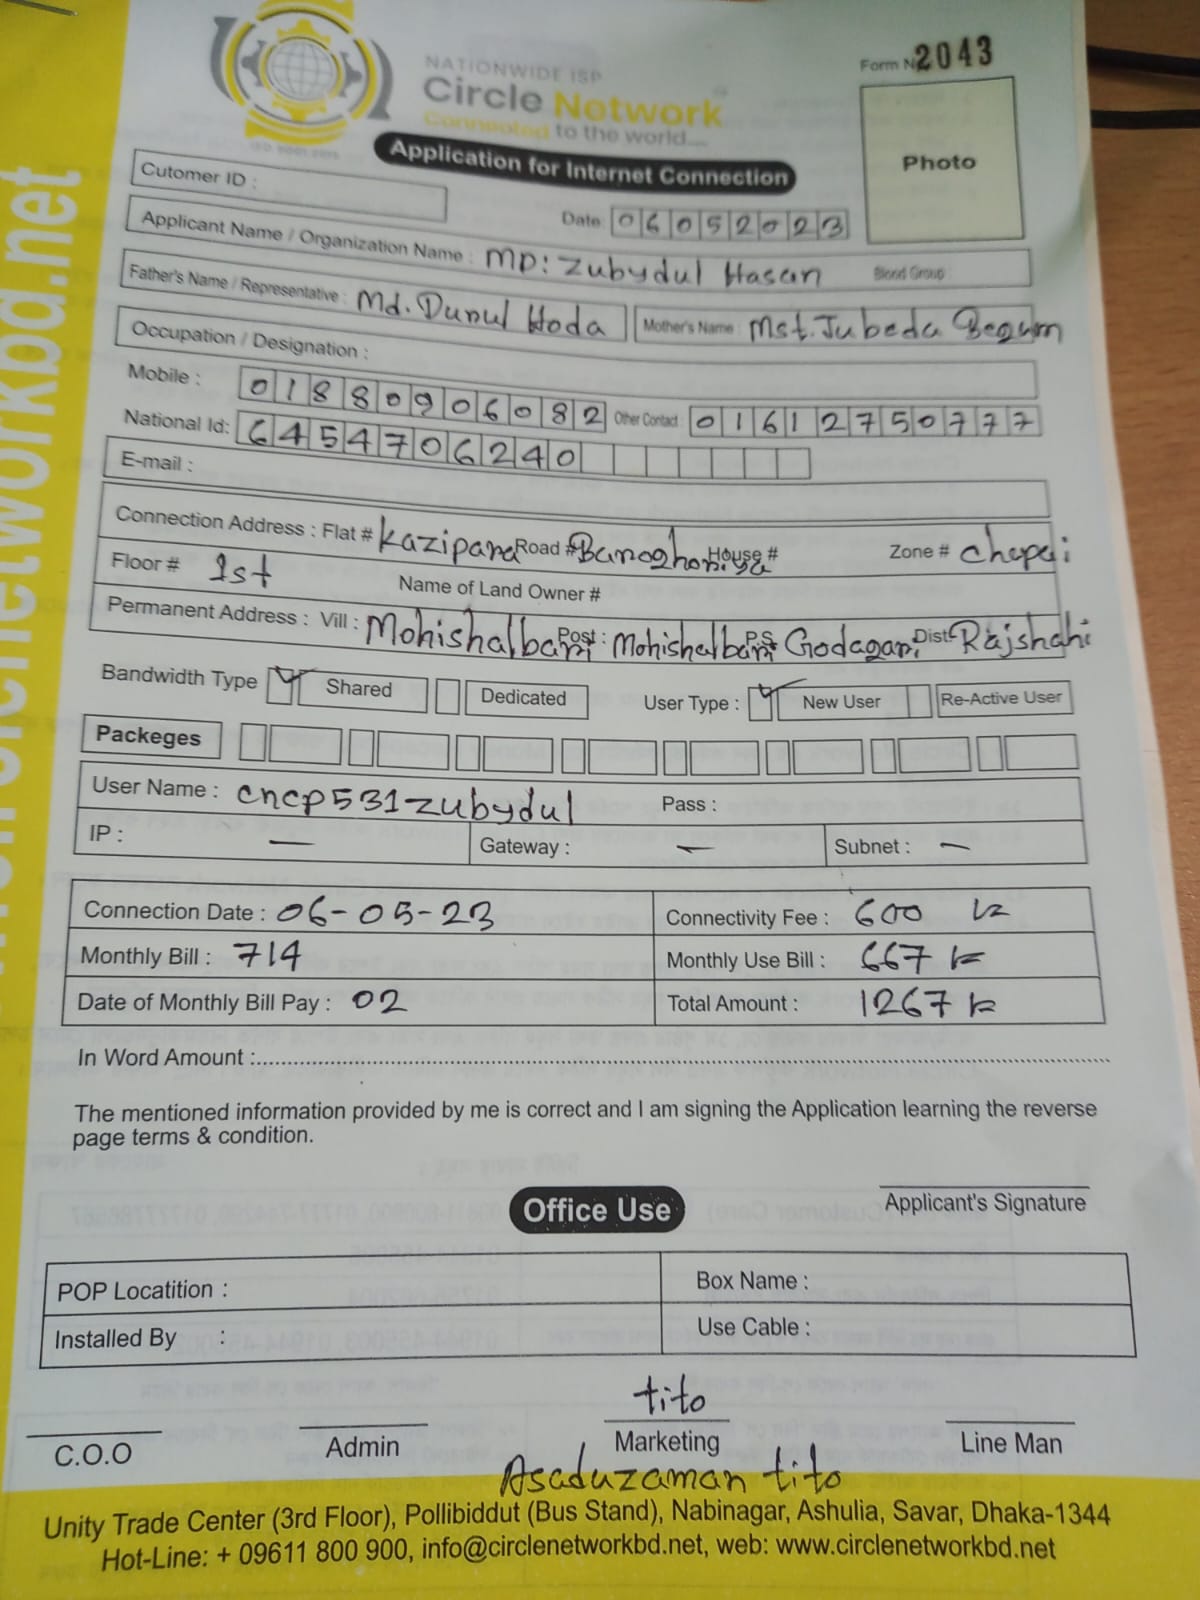 NATIONWIDE ISP
Circle Network
Connected to the world....
ISO 9001:2015
Form N 2043
Photo
Application for Internet Connection
Cutomer ID :
Date: 06052023
Applicant Name / Organization Name : MD: Zubydul Hasan Blood Group :
Father's Name / Representative : Md. Durul Hoda Mother's Name : Mst. Jubeda Begum
Occupation / Designation :
Mobile : 01880906082 Other Contact : 01612750777
National Id: 6454706240
E-mail :
Connection Address : Flat # Kazipara Road # Baroghoriya House # Zone # Chapai
Floor # 1st Name of Land Owner #
Permanent Address : Vill : Mohishalbari Post : Mohishalbari P.S Godagari Dist Rajshahi
Bandwidth Type Shared Dedicated User Type : New User Re-Active User
Packeges
User Name : cncp531zubydul Pass :
IP : — Gateway : — Subnet : —
Connection Date : 06-05-23 Connectivity Fee : 600 tk
Monthly Bill : 714 Monthly Use Bill : 667 tk
Date of Monthly Bill Pay : 02 Total Amount : 1267 tk
In Word Amount :
The mentioned information provided by me is correct and I am signing the Application learning the reverse
page terms & condition.
Applicant's Signature
Office Use
POP Locatition : Box Name :
Installed By : Use Cable :
tito
C.O.O Admin Marketing Line Man
Asaduzaman tito
Unity Trade Center (3rd Floor), Pollibiddut (Bus Stand), Nabinagar, Ashulia, Savar, Dhaka-1344
Hot-Line: + 09611 800 900, info@circlenetworkbd.net, web: www.circlenetworkbd.net